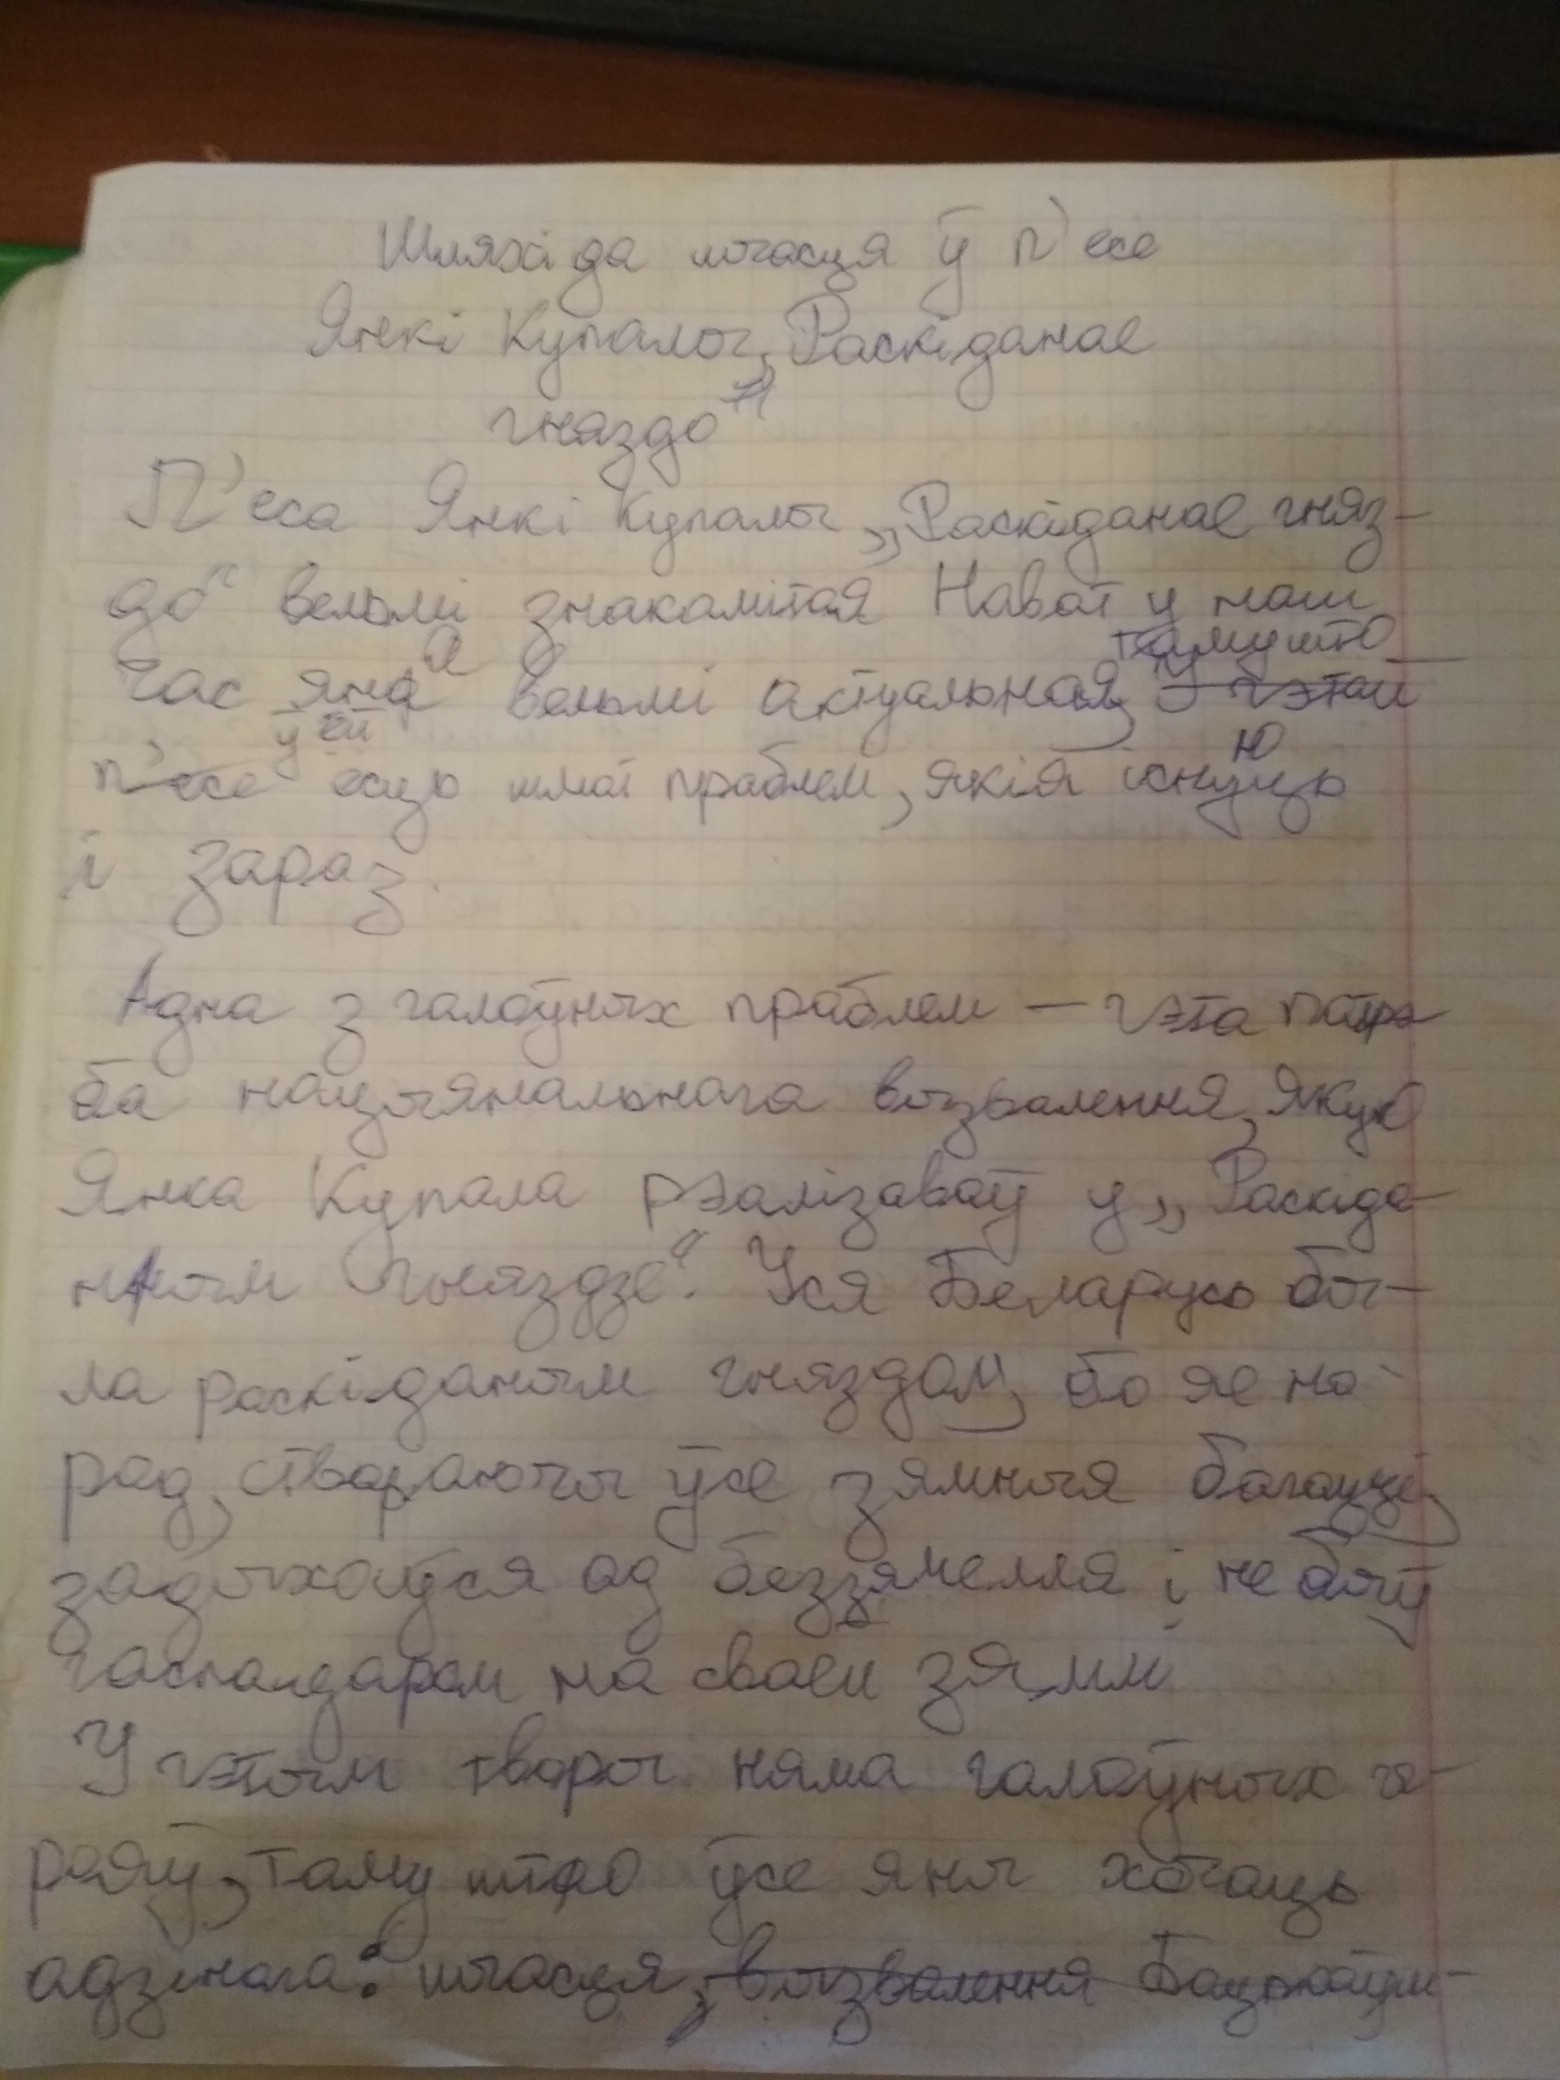 Шляхі да шчасця ў п'есе
Янкі Купалы „Раскіданае
гняздо"
П'еса Янкі Купалы „Раскіданае гняз-
до" вельмі знакамітая Нават у наш
тамушто
час яна вельмі актуальная, у гэтай
у ёй
п'есе ёсць шмат праблем, якія існуюць
і зараз.
Адна з галоўных праблем — гэта патрэ-
ба нацыянальнага вызвалення, якую
Янка Купала рэалізаваў у „Раскіда-
ным гняздзе". Уся Беларусь бы-
ла раскіданым гняздом, бо яе на-
род, ствараючы ўсе зямныя багацці,
задыхаўся ад беззямелля і не быў
гаспадаром на сваей зямлі
У гэтым творы няма галоўных ге-
рояў, таму што ўсе яны хочаць
адзінага: шчасця, вызвалення Бацькаўш-